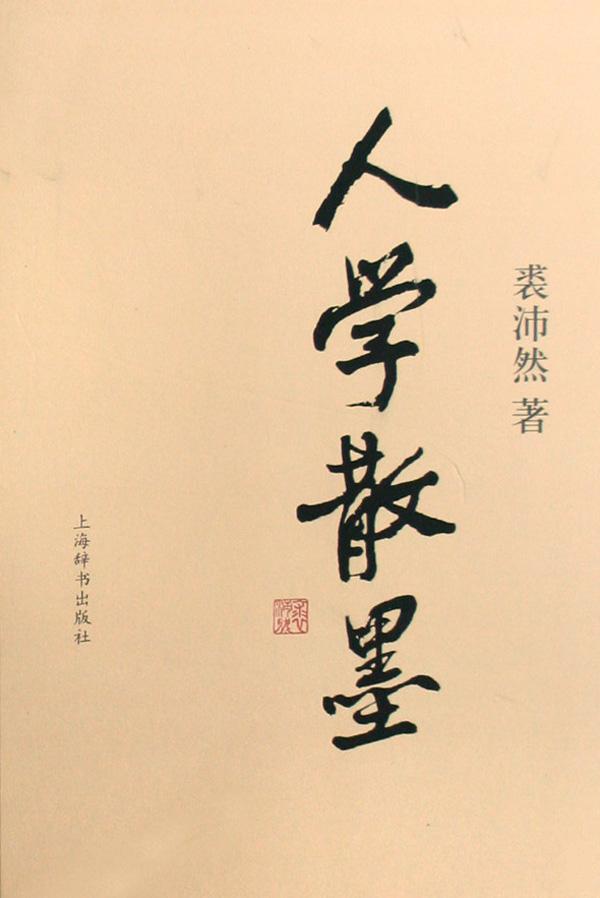 裘沛然 著
人学散墨
裘沛然
上海辞书出版社